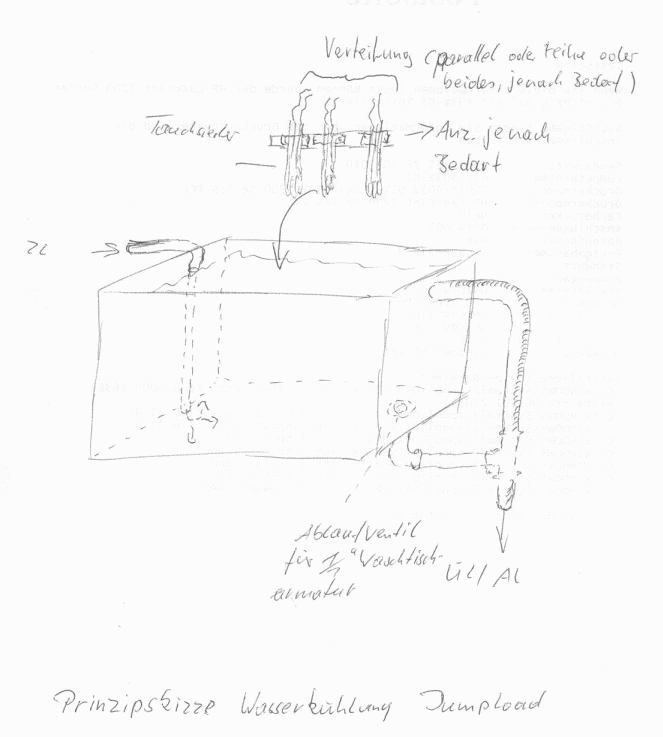 Verteilung (parallel oder Reihe oder
beides, je nach Bedarf)
Tauchsieder
Anz. je nach
Bedarf
ZL
Ablaufventil
für 1/2" Waschtisch-
armatur
ÜL/AL
Prinzipskizze Wasserkühlung Dumpload